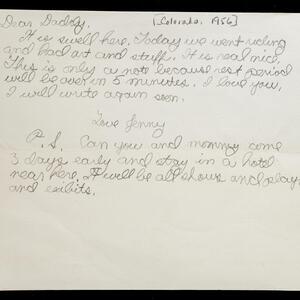 Dear Daddy, [Colorado, 1956]
It is swell here. Today we went riding
and had art and stuff. It is real nice.
This is only a note because rest period
will be over in 5 minutes. I love you,
I will write again soon.
Love Jenny
P.S. Can you and mommy come
3 days early and stay in a hotel
near here. It will be all shows and plays
and exibits.